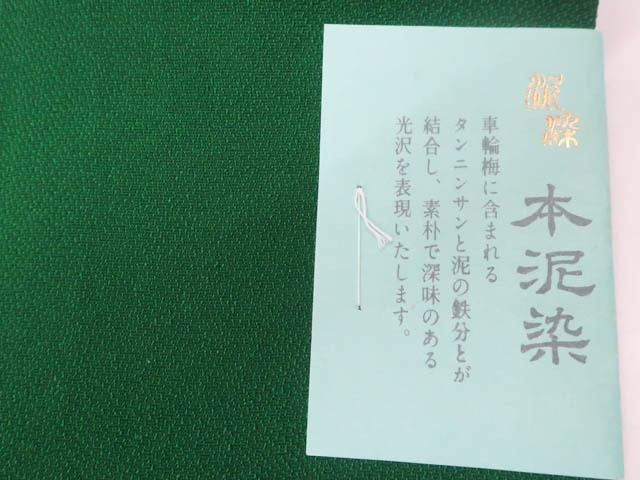 泥染
本泥染
車輪梅に含まれる
タンニンサンと泥の鉄分とが
結合し、素朴で深味のある
光沢を表現いたします。